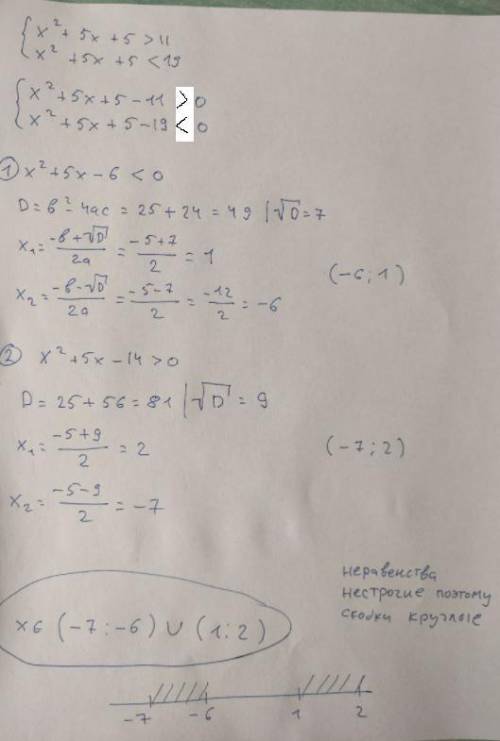 { x² + 5x + 5 > 11
x² + 5x + 5 < 19
{ x² + 5x + 5 - 11 > 0
x² + 5x + 5 - 19 < 0
① x² + 5x - 6 < 0
D = b² - 4ac = 25 + 24 = 49 | √D = 7
x₁ = (-b + √D)/2a = (-5 + 7)/2 = 1
(-6; 1)
x₂ = (-b - √D)/2a = (-5 - 7)/2 = -12/2 = -6
② x² + 5x - 14 > 0
D = 25 + 56 = 81 | √D = 9
x₁ = (-5 + 9)/2 = 2
(-7; 2)
x₂ = (-5 - 9)/2 = -7
неравенства
нестрогие поэтому
скобки круглые
x ϵ (-7; -6) ∪ (1; 2)
-7 -6 1 2